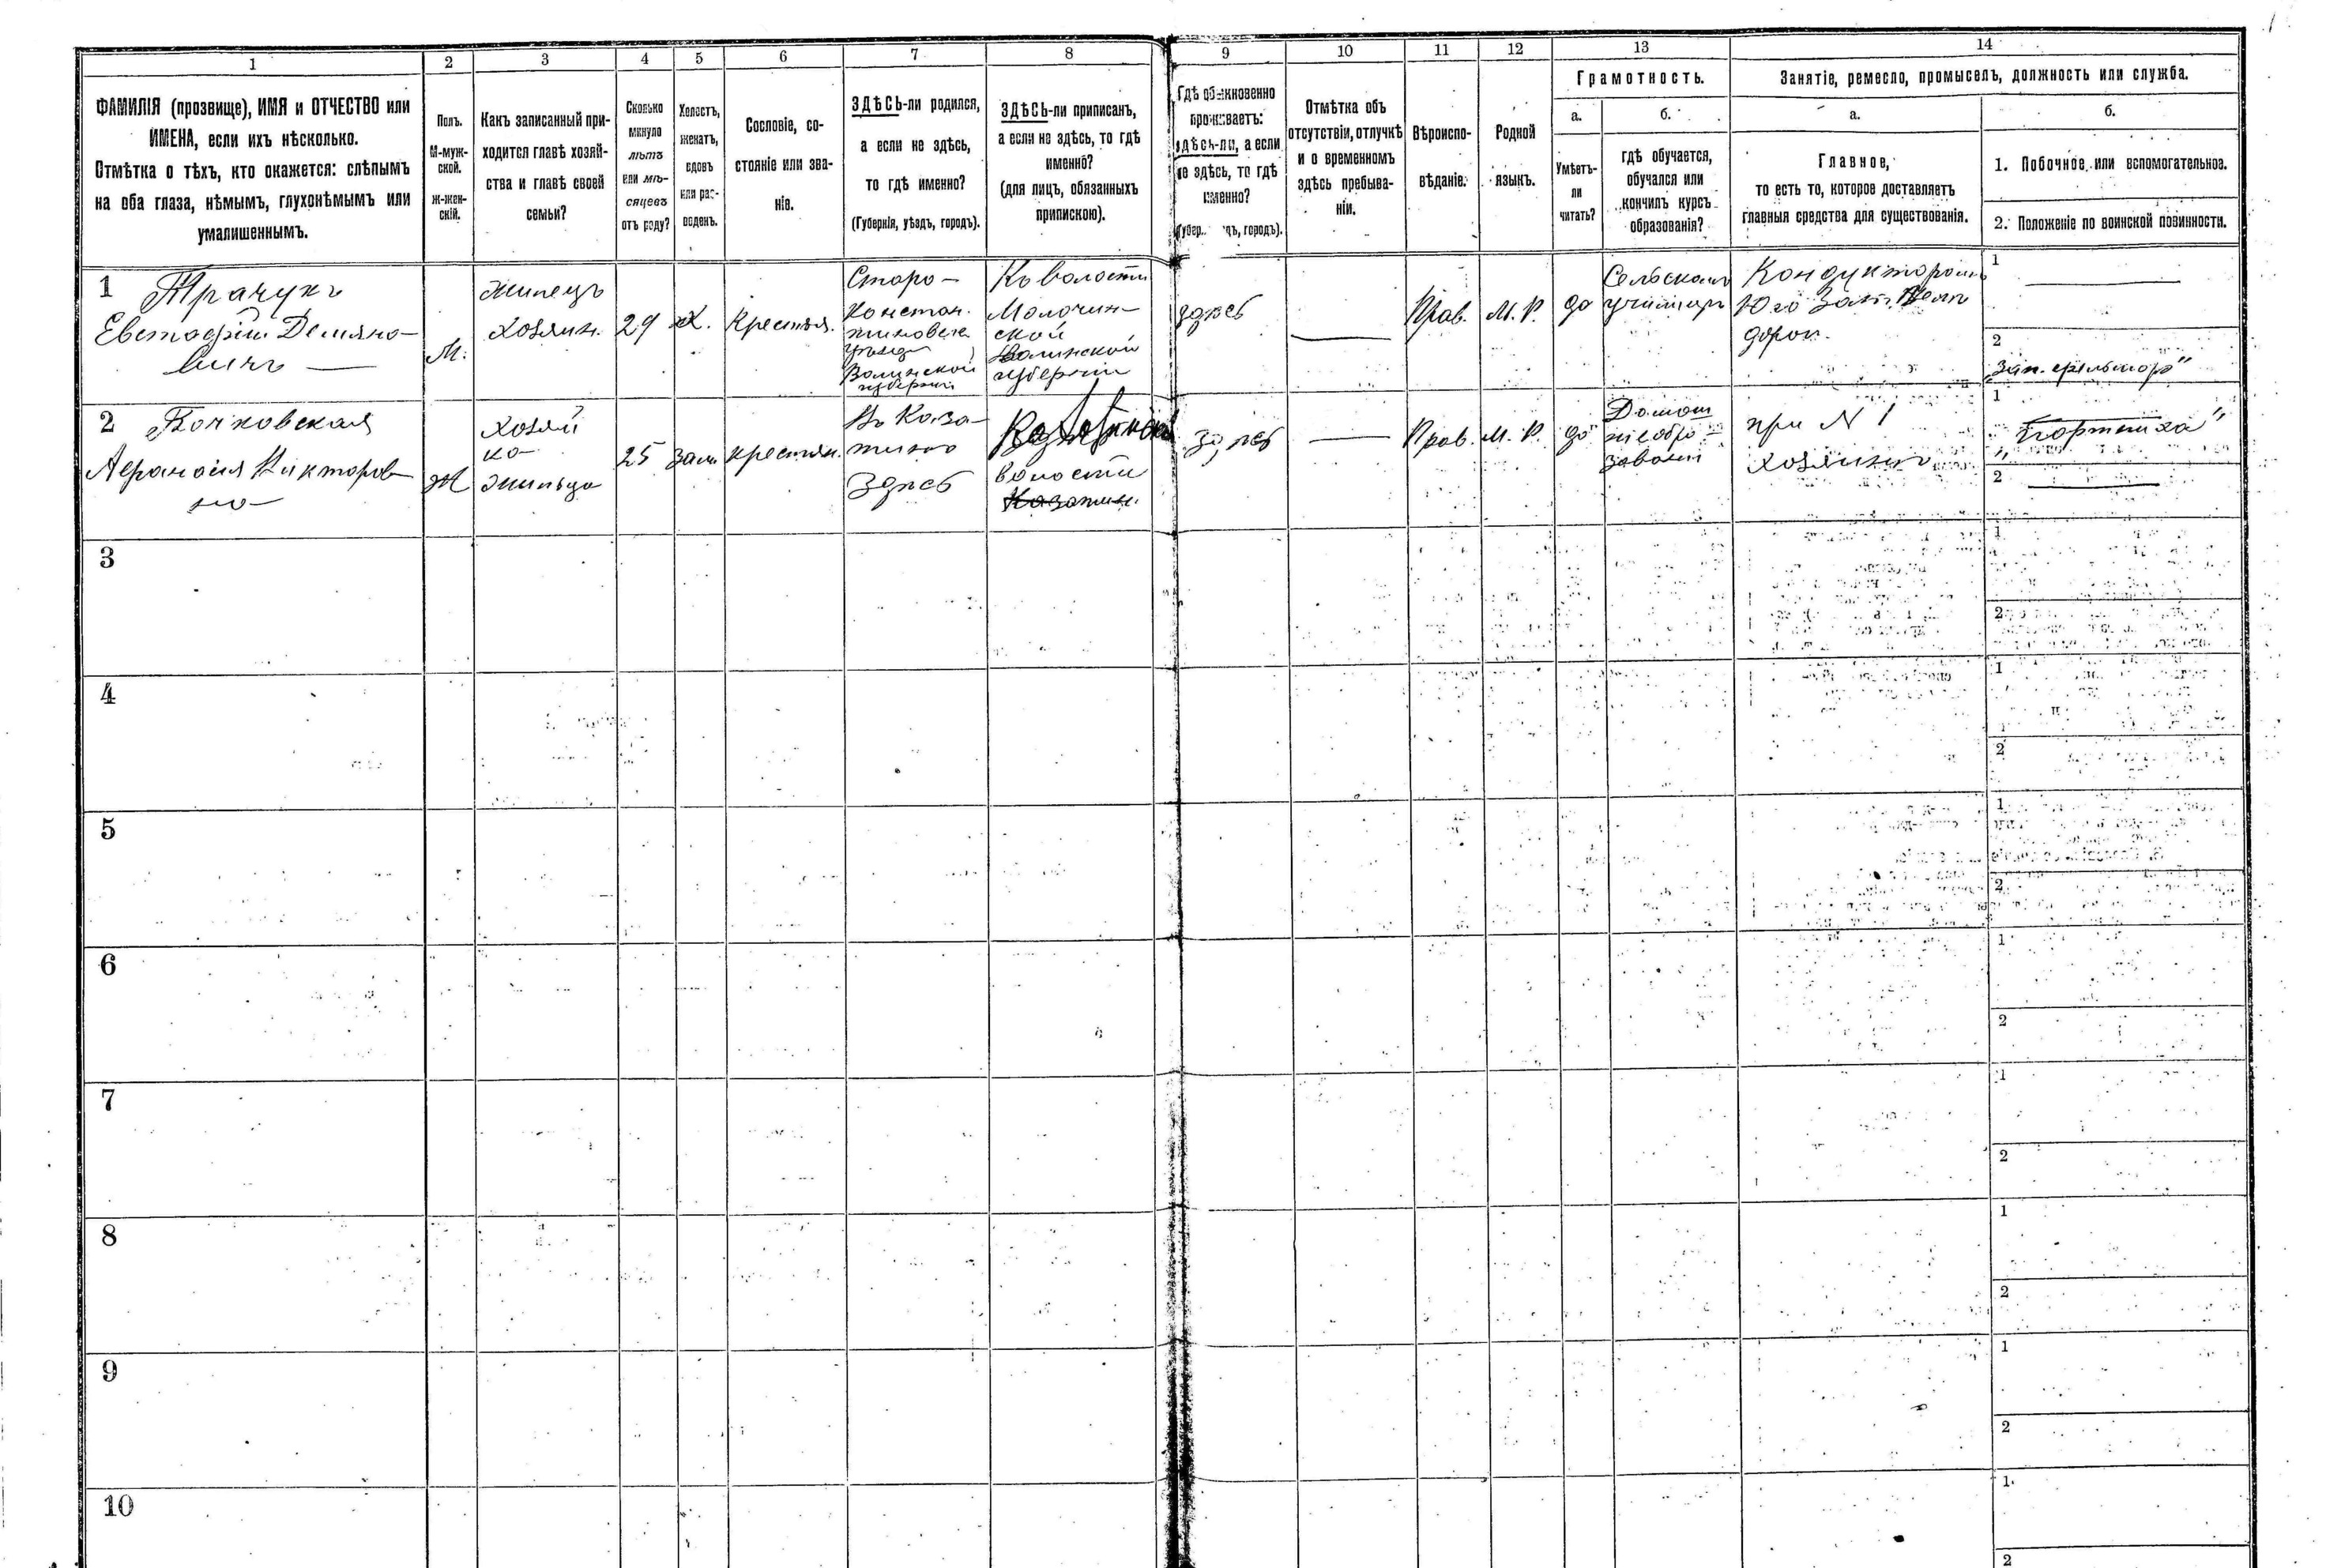 1
2
3
4
5
6
7
8
9
10
11
12
13
14
ФАМИЛІЯ (прозвище), ИМЯ и ОТЧЕСТВО или
ИМЕНА, если ихъ нѣсколько.
Отмѣтка о тѣхъ, кто окажется: слѣпымъ
на оба глаза, нѣмымъ, глухонѣмымъ или
умалишеннымъ.
Полъ.
М-муж-
ской.
Ж-жен-
скій.
Какъ записанный при-
ходится главѣ хозяй-
ства и главѣ своей
семьи?
Сколько
минуло
лѣтъ
или мѣ-
сяцевъ
отъ роду?
Холостъ,
женатъ,
вдовъ
или раз-
веденъ.
Сословіе, со-
стояніе или зва-
ніе.
ЗДѢСЬ-ли родился,
а если не здѣсь,
то гдѣ именно?
(Губернія, уѣздъ, городъ).
ЗДѢСЬ-ли приписанъ,
а если не здѣсь, то гдѣ
именно?
(для лицъ, обязанныхъ
припискою).
Гдѣ обыкновенно
проживаетъ:
здѣсь-ли, а если
не здѣсь, то гдѣ
именно?
Отмѣтка объ
отсутствіи, отлучкѣ
и о временномъ
здѣсь пребыва-
ніи.
Вѣроиспо-
вѣданіе.
Родной
языкъ.
Грамотность.
а.
Умѣетъ-
ли
читать?
б.
гдѣ обучается,
обучался или
кончилъ курсъ
образованія?
Занятіе, ремесло, промыселъ, должность или служба.
а.
Главное,
то есть то, которое доставляетъ
главныя средства для существованія.
б.
1. Побочное или вспомогательное.
2. Положеніе по воинской повинности.
1 Трачукъ
Евстафій Демяно-
вичъ
М.
Жилецъ
Хозяин.
29
Х.
Крестья.
Старо-
Констан.
тиновск
уѣзда
Волынской
губерніи
Къ волости
Молочин-
ской
Волинской
губерніи
здѣсь
Прав.
М. Р.
да
Сельском
училищѣ
Кондукторомъ
Юго Зап. Жел
дорог.
1
2
"Зап. ефрейторъ"
2 Бочковская
Афанасія Викторов
на
Ж
Хозяй
ка
Жильца
25
Зам.
крестьян.
Въ Каза-
тинѣ
Здѣсь
волости
Казатин.
здѣсь
Прав.
М. Р.
да
Домаш
нѣе обра-
зованіи
при N 1
хозяинѣ
1
"Портниха"
2
3
1
2
4
1
2
5
1
2
6
1
2
7
1
2
8
1
2
9
1
2
10
1
2